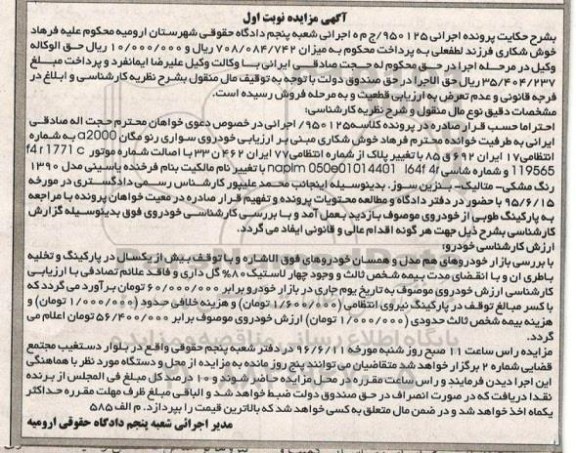 آگهی مزایده نوبت اول
بشرح حکایت پرونده اجرائی ۹۵۰۱۲۵/ج م ه اجرائی شعبه پنجم دادگاه حقوقی شهرستان ارومیه محکوم علیه فرهاد
خوش شکاری فرزند لطفعلی به پرداخت محکوم به میزان ۷۰۸/۰۸۴/۷۴۲ ریال و ۱۰/۰۰۰/۰۰۰ ریال حق الوکاله
وکیل در مرحله اجرا در حق محکوم له حجت صادقی ایرانی با وکالت وکیل علیرضا ایمانفرد و پرداخت مبلغ
۳۵/۴۰۴/۲۳۷ ریال حق الاجرا در حق صندوق دولت با توجه به توقیف مال منقول بشرح نظریه کارشناسی و ابلاغ در
فرجه قانونی و عدم تعرض به ارزیابی قطعیت و به مرحله فروش رسیده است.
مشخصات دقیق نوع مال منقول و شرح نظریه کارشناسی:
احتراما حسب قرار صادره در پرونده کلاسه ۹۵۰۱۲۵/ اجرائی در خصوص دعوی خواهان محترم حجت اله صادقی
ایرانی به طرفیت خوانده محترم فرهاد خوش شکاری مبنی بر ارزیابی خودروی سواری رنو مگان a2000 به شماره
انتظامی ۱۷ ایران ۶۹۲ ق ۸۵ با تغییر پلاک از شماره انتظامی ۷۷ ایران ۴۶۲ ن ۳۳ با اصالت شماره موتور f4r1771 c
119565 و شماره شاسی naplm 050e01014401 l64f 4f با تغییر نام مالکیت بنام فرخنده یاسینی مدل ۱۳۹۰
رنگ مشکی- متالیک- بنزین سوز. بدینوسیله اینجانب محمد علیپور کارشناس رسمی دادگستری در مورخه
۹۵/۶/۱۵ با حضور در دفتر دادگاه و مطالعه محتویات پرونده و تفهیم قرار صادره در معیت خواهان پرونده با مراجعه
به پارکینگ طوبی از خودروی موصوف بازدید بعمل آمد و با بررسی کارشناسی خودروی فوق بدینوسیله گزارش
کارشناسی بشرح ذیل جهت هر گونه اقدام عالی و قانونی ایفاد می گردد.
ارزش کارشناسی خودرو:
با بررسی بازار خودروهای هم مدل و همسان خودروهای فوق الاشاره و با توقف بیش از یکسال در پارکینگ و تخلیه
باطری ان و با انقضای مدت بیمه شخص ثالث و وجود چهار لاستیک ۸۰% گل داری و فاقد علائم تصادفی با ارزیابی
کارشناسی ارزش خودروی موصوف به تاریخ یوم جاری در بازار خودرو برابر ۶۰/۰۰۰/۰۰۰ تومان برآورد می گردد که
با کسر مبالغ توقف در پارکینگ نیروی انتظامی (۱/۶۰۰/۰۰۰ تومان) و هزینه خلافی حدود (۱/۰۰۰/۰۰۰ تومان) و
هزینه بیمه شخص ثالث حدودی (۱/۰۰۰/۰۰۰ تومان) ارزش خودروی موصوف برابر ۵۶/۴۰۰/۰۰۰ تومان اعلام می
گردد.
مزایده راس ساعت ۱۱ صبح روز شنبه مورخه ۹۶/۶/۱۱ در دفتر شعبه پنجم حقوقی واقع در بلوار دستغیب مجتمع
قضایی شماره ۲ برگزار خواهد شد متقاضیان می توانند پنج روز مانده به مزایده از محل و دستگاه مورد نظر با هماهنگی
این اجرا دیدن فرمایند و راس ساعت مقرره در محل مزایده حاضر شوند و ۱۰ درصد کل مبلغ فی المجلس از برنده
نقدا دریافت که در صورت انصراف در حق صندوق دولت ضبط خواهد شد و الباقی مبلغ ظرف مهلت مقرره حداکثر
یکماه اخذ خواهد شد و در ضمن مال متعلق به کسی خواهد شد که بالاترین قیمت را بپردازد. م الف ۵۸۵
مدیر اجرائی شعبه پنجم دادگاه حقوقی ارومیه